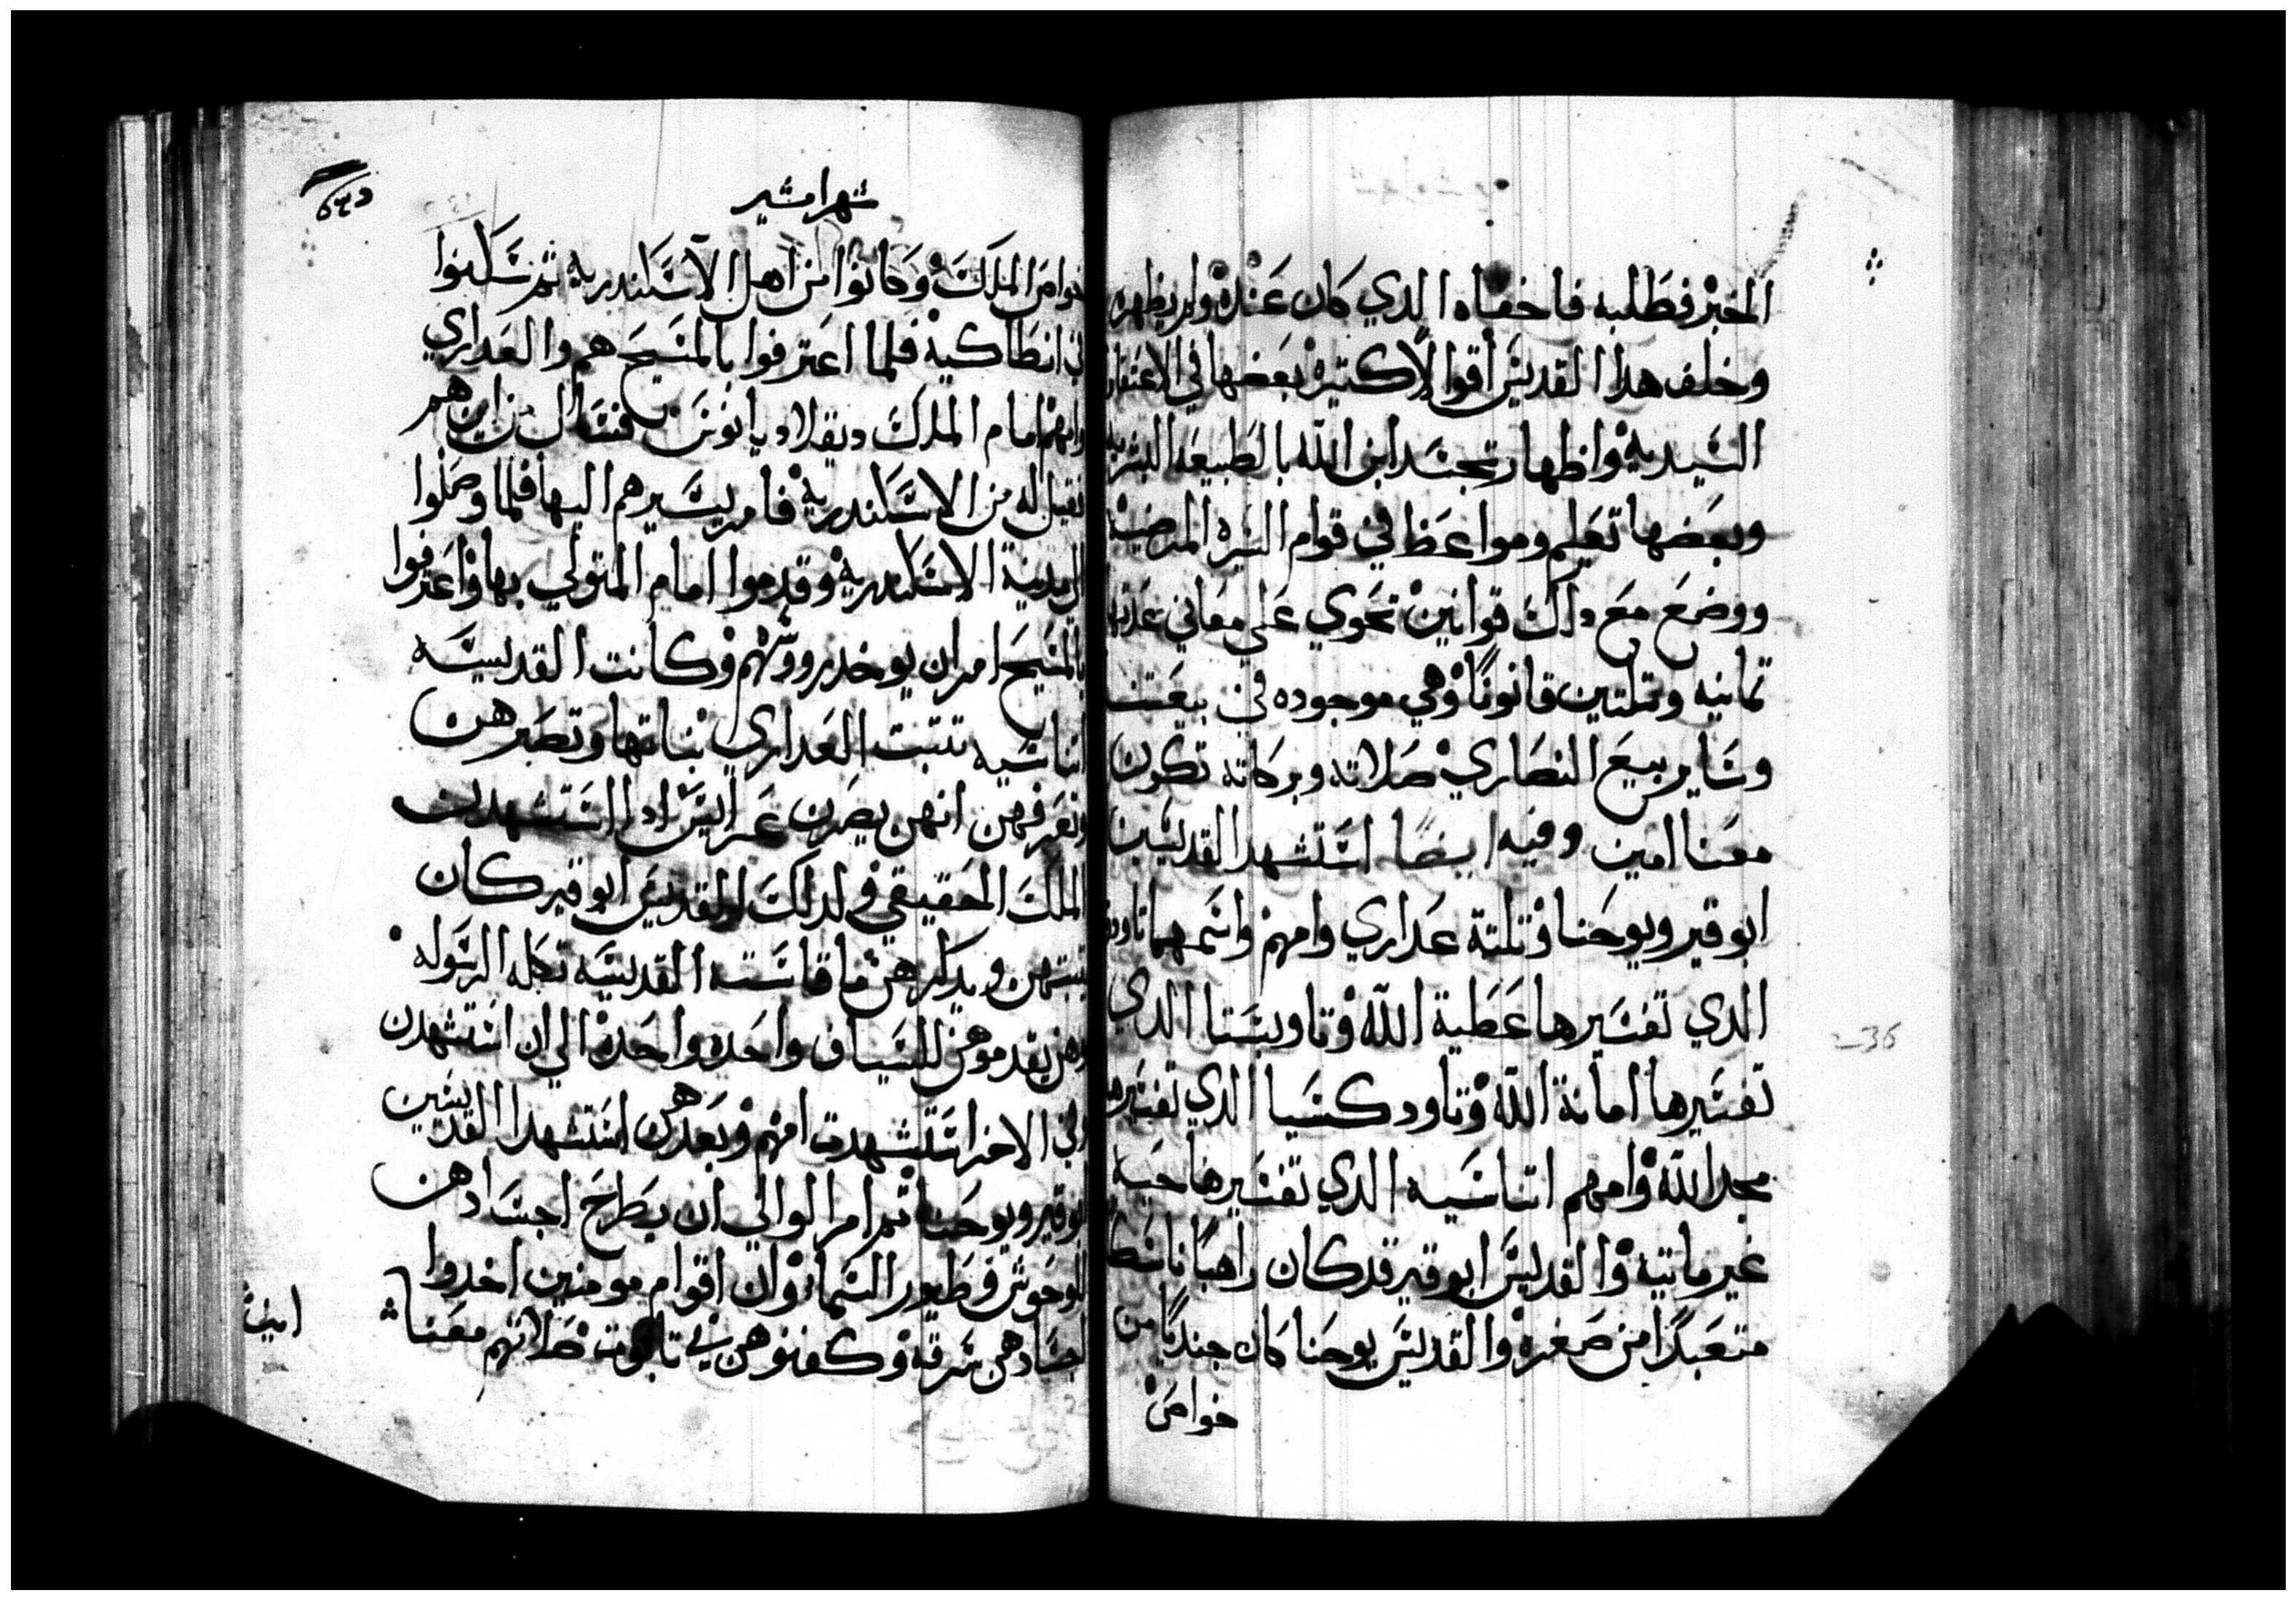 الخبر فطلبه فاخفاه الدي كان عنده ولم يظهره
وخلف هدا القديس أقوالاً كتيره بعضها في الاعتقاد
السيديه واظهار تجسد ابن الله بالطبيعه البشريه
وبعضها تعليم ومواعظ في قوام السيره المرضيه
ووضع مع دلك قوانين تحوي على معاني عدتها
تمانيه وتلتين قانونًا وهي موجوده في بيعتنا
وساير بيع النصاري صلاته وبركاته تكون
معنا امين وفيه ايضًا استشهد القديسين
ابوقير ويوحنا وتلتة عداري وامهم واسمهما تاودو
الدي تفسيرها عطية الله وتاوبستا الدي
تفسيرها امانة الله وتاودكسيا الدي تفسيرها
مجد الله وامهم اتناسيه الدي تفسيرها حيه
غير ماتيه والقديس ابوقير قد كان راهبًا ناسكا
متعبدًا من صغره والقديس يوحنا كان جنديًا من
خواص
شهر امشير
خواص الملك وكانوا من اهل الاسكندريه ثم سكنوا
في انطاكيه فلما اعترفوا بالمسيح هم والعداري
وامهم امام الملك ديقلاديانوس فسال من اين هم
فقيل له من الاسكندريه فامر بسيرهم اليها فلما وصلوا
الي مدينة الاسكندريه وقدموا امام المتولي بها واعترفوا
بالمسيح امر ان يوخد رووسهم وكانت القديسه
اتناسيه تتبت العداري بناتها وتصبرهن
وتعرفهن انهن يصرن عرايس ادا استشهدن
الملك الحقيقي ولدلك القديس ابوقير كان
يتبتهن ويدكرهن ما قاسته القديسه تكله الرسوله
وهن يقدموهن للسياف واحده واحده الي ان استشهدن
وفي الاخر استشهدت امهم وبعدهن استشهدا القديسين
ابوقير ويوحنا ثم امر الوالي ان يطرح اجسادهن
للوحوش وطيور السما وان اقوام مومنين اخدوا
اجسادهن سرقه وكفنوهن في تابوت صلاتهم معنا
امين